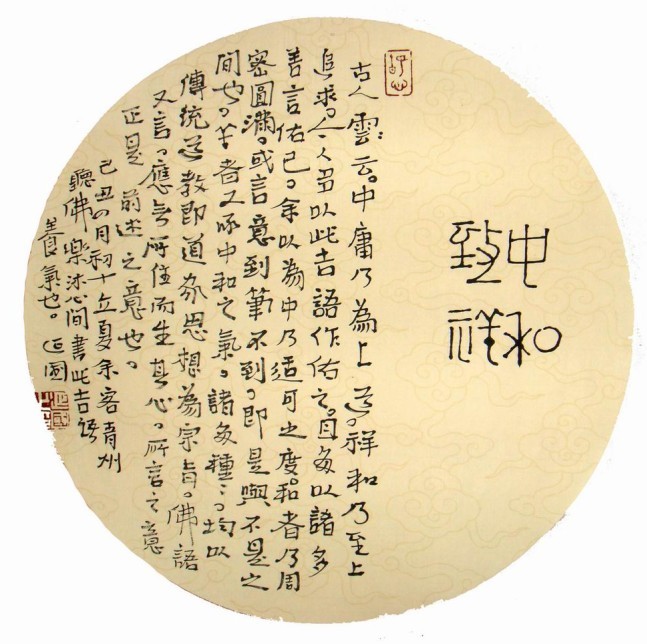 中和
致祥
古人雲：云。中庸乃為上道。祥和乃至上
追求。人人多以此吉語作佑之。因多以諸多
善言佑己。余以為中乃適可之度。和者乃周
密圓滿。或言意到筆不到。即是與不是之
間也。羊者又中和之氣。諸多種種。均以
傳統道教即道家思想為宗旨。佛語
又言。應無所住而生其心。所言之意
正是前述之意也。
己丑四月初十立夏余客青州
聽佛樂沐心間書此吉語
養氣也。正國